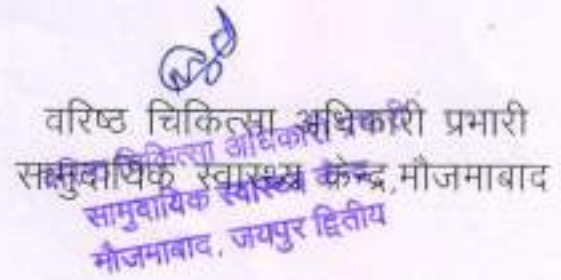 वरिष्ठ चिकित्सा अधिकारी प्रभारी
सामुदायिक स्वास्थ्य केन्द्र,मौजमाबाद
चिकित्सा अधिकारी
सामुदायिक स्वास्थ्य केन्द्र
मौजमाबाद, जयपुर द्वितीय